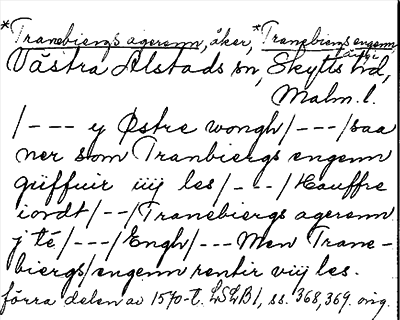 *Tranebiergs agerenn, åker, *Tranebiergs engenn, äng
Västra Alstads sn, Skytts hd,
Malm. l.
/--- y Østre wongh/---/saa
ner som Tranbiergs engenn
giiffuir iiij les/---/Hauffre
iordt/--/Tranebiergs agerenn
j té/---/Engh/---Men Trane-
biergs/engenn rentir viij les.
förra delen av 1570-t. LSLB1, ss. 368, 369. orig.